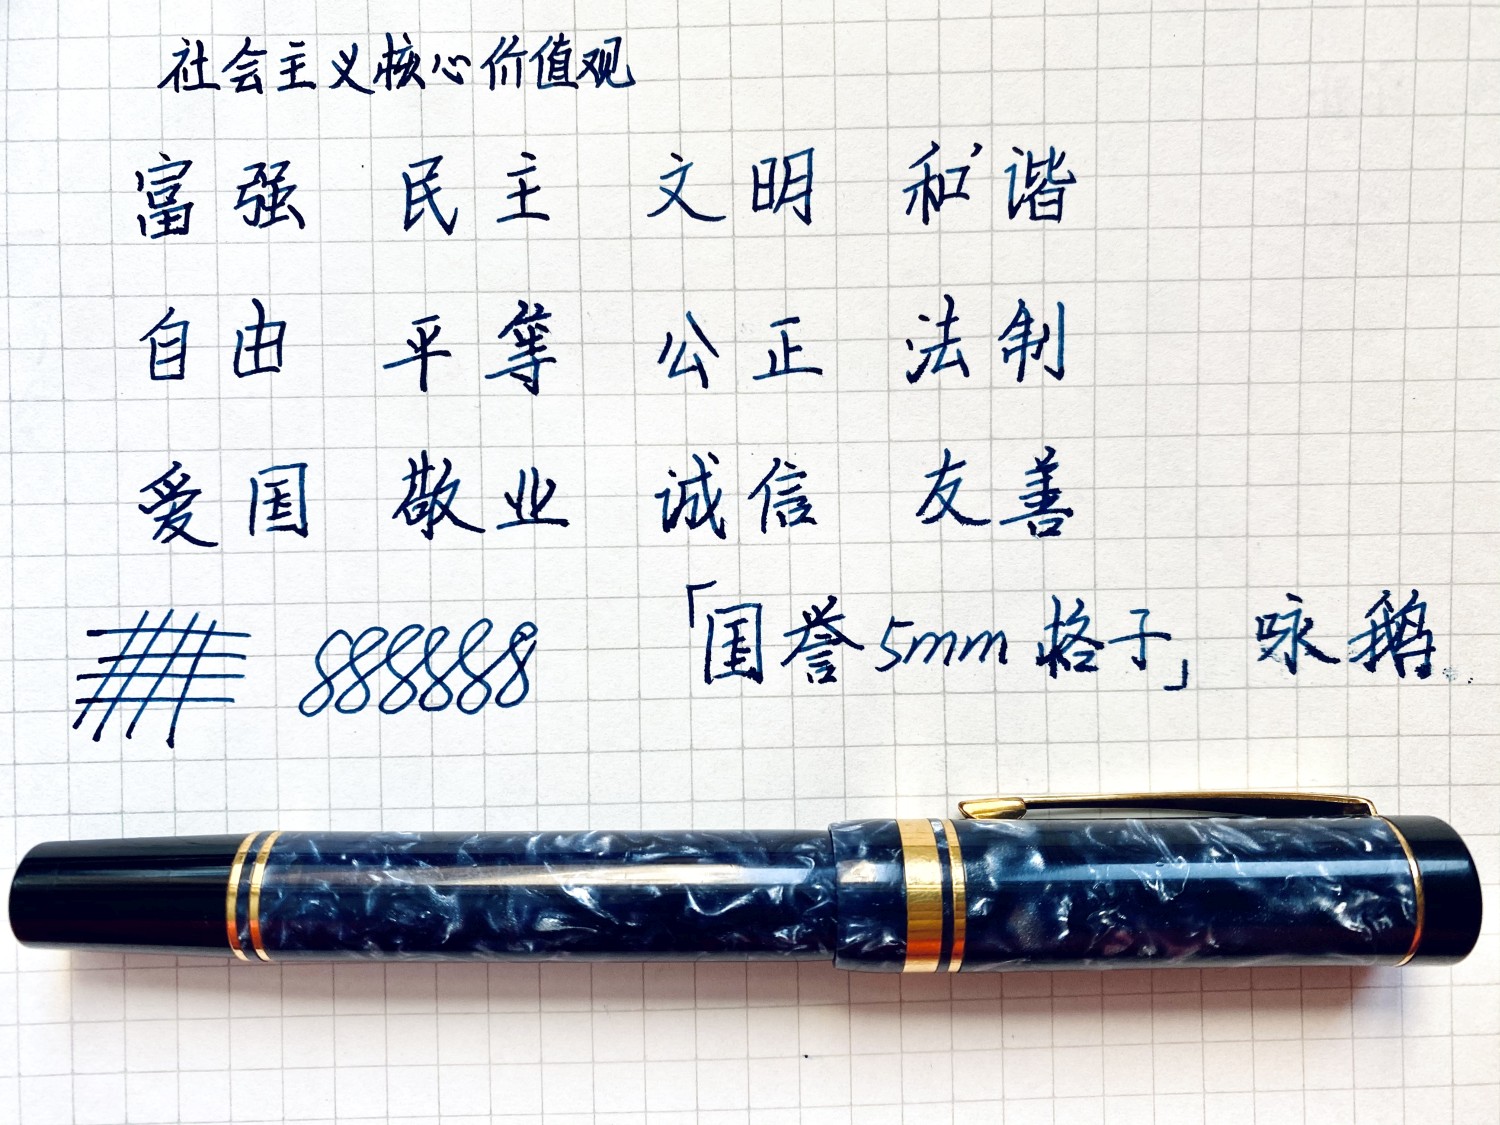 社会主义核心价值观
富强 民主 文明 和谐
自由 平等 公正 法制
爱国 敬业 诚信 友善
888888 「国誉5mm格子」 咏鹅